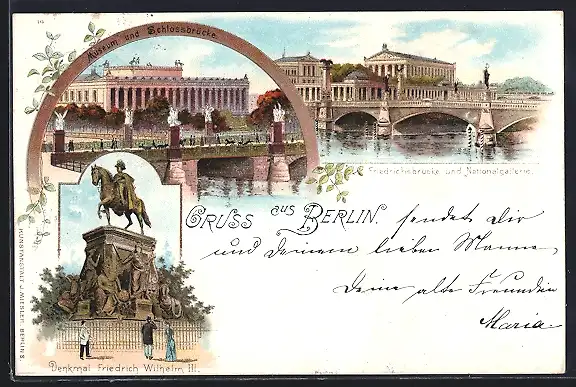 Museum und Schlossbrücke.
Friedrichsbrücke und Nationalgallerie.
Gruss aus Berlin. sendet Dir
und deinem lieben Manne,
Deine alte Freundin
Maria.
Denkmal Friedrich Wilhelm III.
KUNSTANSTALT J. MIESLER, BERLIN S.